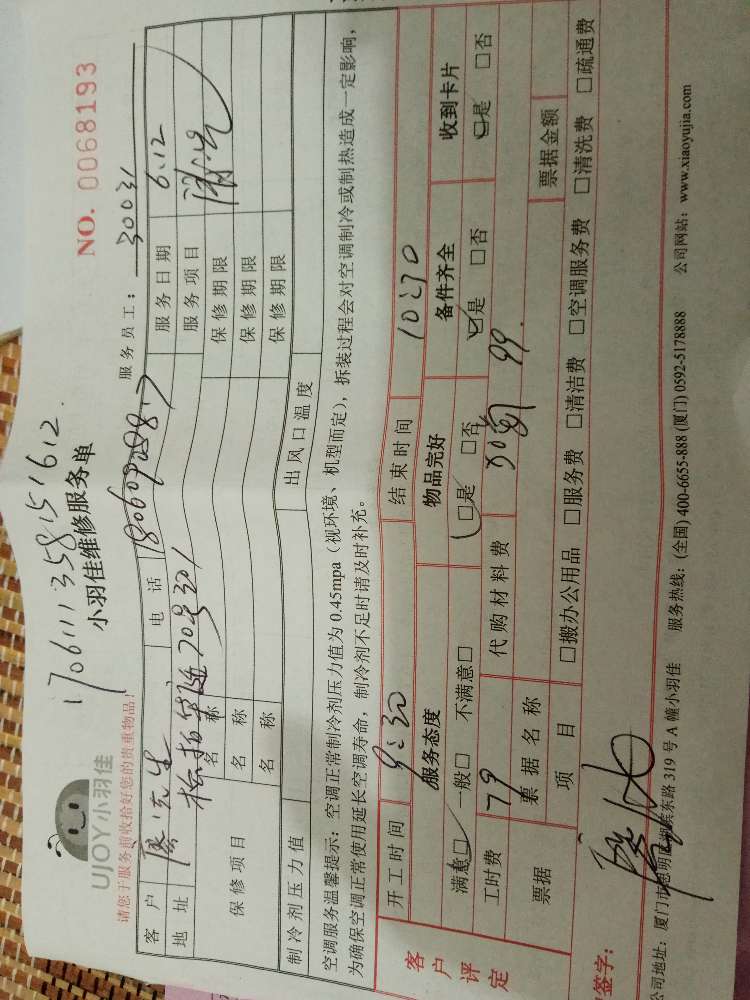 UJOY小羽佳
1706111358151612
小羽佳维修服务单
NO. 0068193
请您于服务前收拾好您的贵重物品!
服务员工: 30031
客户 先生 电话
服务日期 6.12
地址 松柏 70号301
服务项目
保修项目
名称 保修期限
名称 保修期限
名称 保修期限
制冷剂压力值 出风口温度
空调服务温馨提示: 空调正常制冷剂压力值为 0.45mpa (视环境、机型而定), 拆装过程会对空调制冷或制热造成一定影响,
为确保空调正常使用延长空调寿命, 制冷剂不足时请及时补充。
开工时间 9:30 结束时间 10:30
客户评定
服务态度 物品完好 备件齐全 收到卡片
满意□ 一般□ 不满意□ □是 □否 □是 □否 □是 □否
工时费 79 代购材料费 99.
票据 票据名称 票据金额
项目 □搬办公用品 □服务费 □清洁费 □空调服务费 □清洗费 □疏通费
签字:
公司地址: 厦门市思明区湖滨东路 319 号 A 幢小羽佳 服务热线: (全国) 400-6655-888 (厦门) 0592-5178888 公司网站: www.xiaoyujia.com